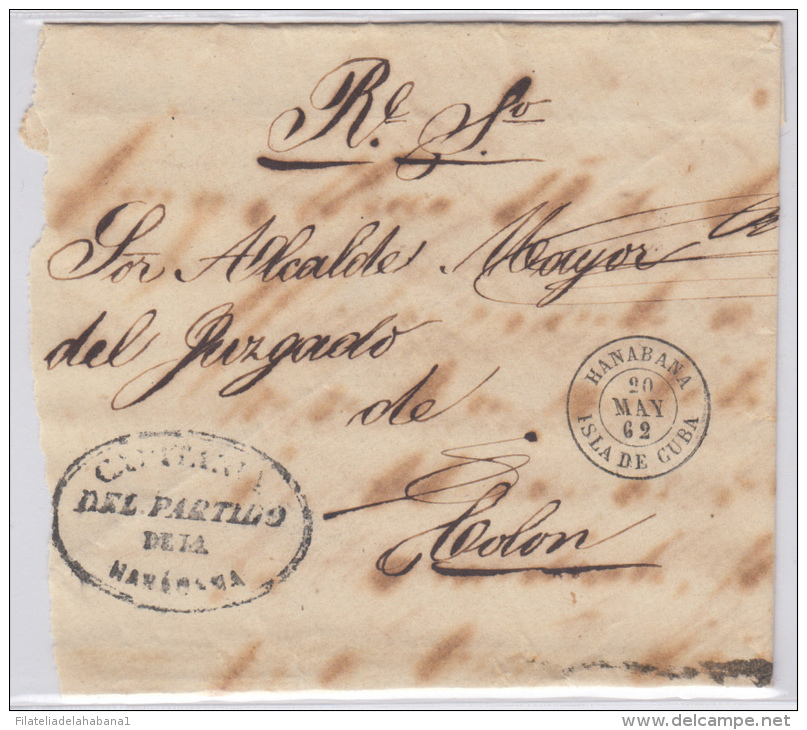 Rl. So.
Sor Alcalde Mayor
del Juzgado
de
Colon
HANABANA
20
MAY
62
ISLA DE CUBA
CAPITANIA
DEL PARTIDO
DE LA
HANABANA
Filateliadelahabana1
delcampe.net